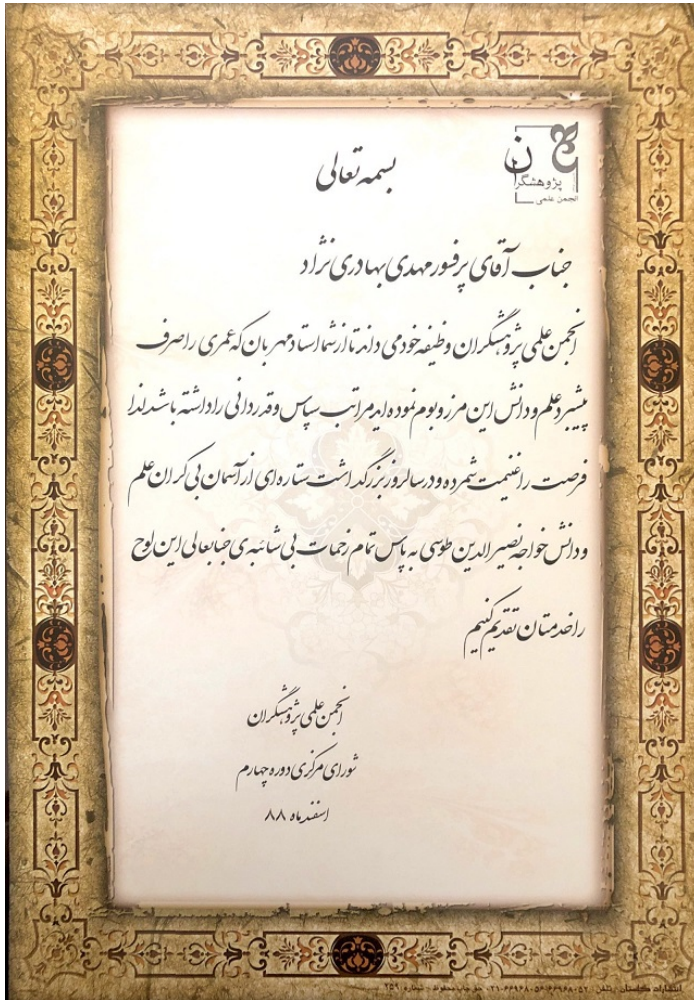 پژوهشگران
انجمن علمی
بسمه تعالی
جناب آقای پرفسور مهدی بهادری نژاد
انجمن علمی پژوهشگران وظیفه خود می داند تا از شما استاد مهربان که عمری را صرف
پیشبرد علم و دانش این مرز و بوم نموده اید مراتب سپاس و قدردانی را داشته باشد لذا
فرصت را غنیمت شمرده و در سالروز بزرگداشت ستاره ای از آسمان بی کران علم
و دانش خواجه نصیر الدین طوسی به پاس تمام زحمات بی شائبه ی جنابعالی این لوح
را خدمتان تقدیم کنیم
انجمن علمی پژوهشگران
شورای مرکزی دوره چهارم
اسفند ماه ۸۸
انتشارات گلستان - تلفن: ۶۶۹۶۸۰۵۲-۶۶۹۶۸۰۵۶-۰۲۱ حق چاپ محفوظ - شماره ۲۵۹